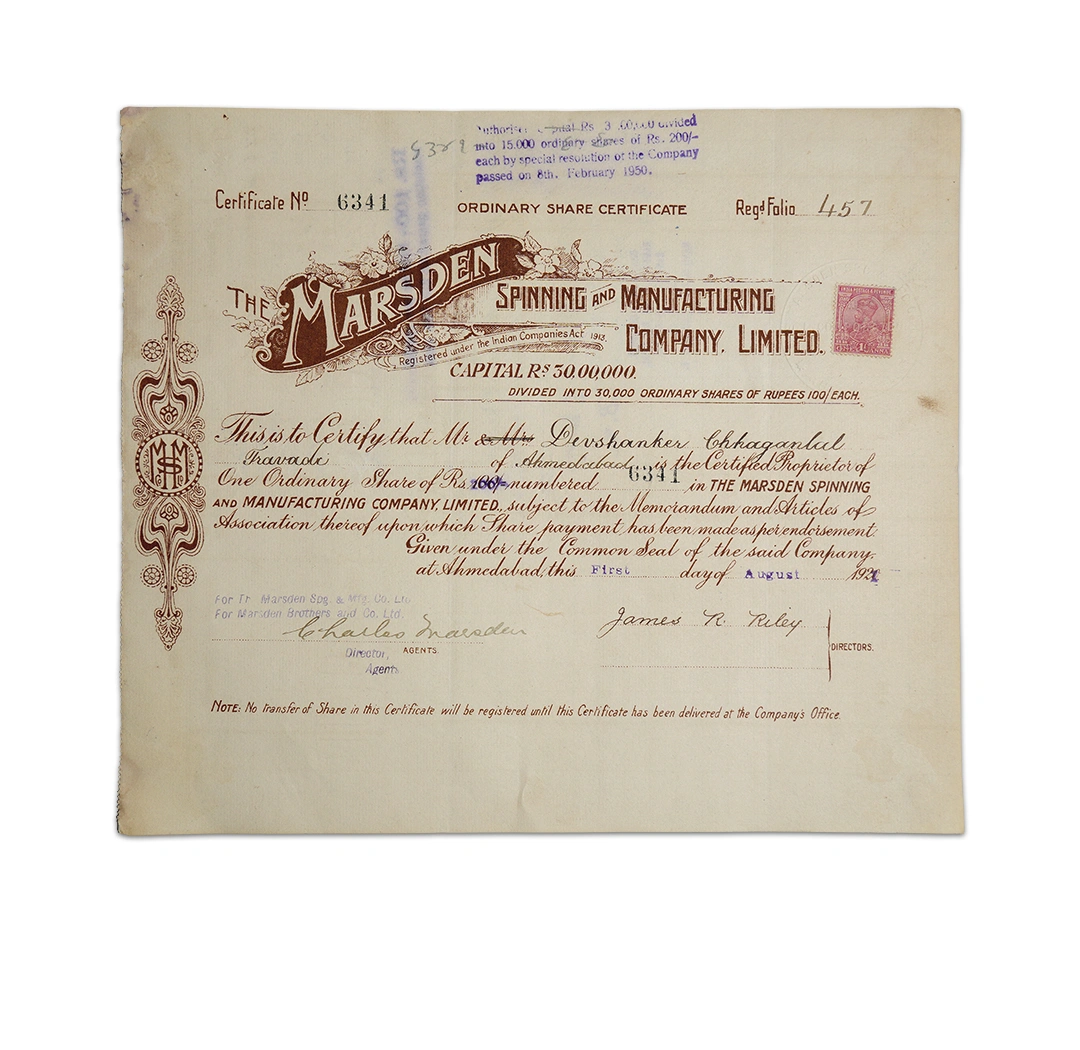 Rs 3
into 15.000 ordinary shares of Rs. 200/-
each by special resolution of the Company
passed on 8th. February 1950.
Certificate No 6341
ORDINARY SHARE CERTIFICATE
Regd Folio 457
THE MARSDEN
SPINNING AND MANUFACTURING
COMPANY, LIMITED.
Registered under the Indian Companies Act 1913.
CAPITAL RS 30,00,000.
DIVIDED INTO 30,000 ORDINARY SHARES OF RUPEES 100/EACH.
INDIA POSTAGE & REVENUE
This is to Certify that Mr & Mrs Devshanker Chhaganlal
Travadi of Ahmedabad is the Certified Proprietor of
One Ordinary Share of Rs numbered 6341 in THE MARSDEN SPINNING
AND MANUFACTURING COMPANY, LIMITED., subject to the Memorandum and Articles of
Association thereof upon which Share payment has been made as per endorsement.
Given under the Common Seal of the said Company,
at Ahmedabad, this First day of August 1921
For Marsden Spg. & Mfg. Co. Ltd
For Marsden Brothers and Co. Ltd.
Charles Marsden
AGENTS.
Director,
Agents
James R. Riley
DIRECTORS.
NOTE: No transfer of Share in this Certificate will be registered until this Certificate has been delivered at the Company's Office.